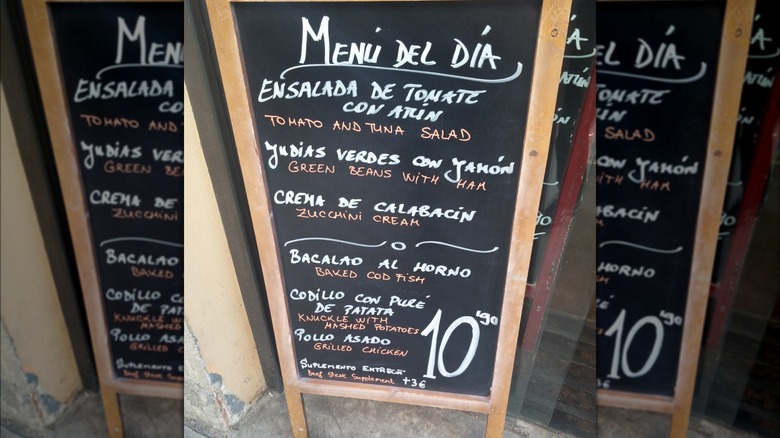 Menú del Día
Ensalada de Tomate
con Atún
Tomato and Tuna Salad
Judías verdes con Jamón
Green Beans with Ham
Crema de Calabacín
Zucchini Cream
Bacalao al Horno
Baked Cod Fish
Codillo con Puré
de Patata
Knuckle with
Mashed Potatoes
Pollo Asado
Grilled Chicken
10'90
Suplemento Entrecot
Beef Steak Supplement +3€